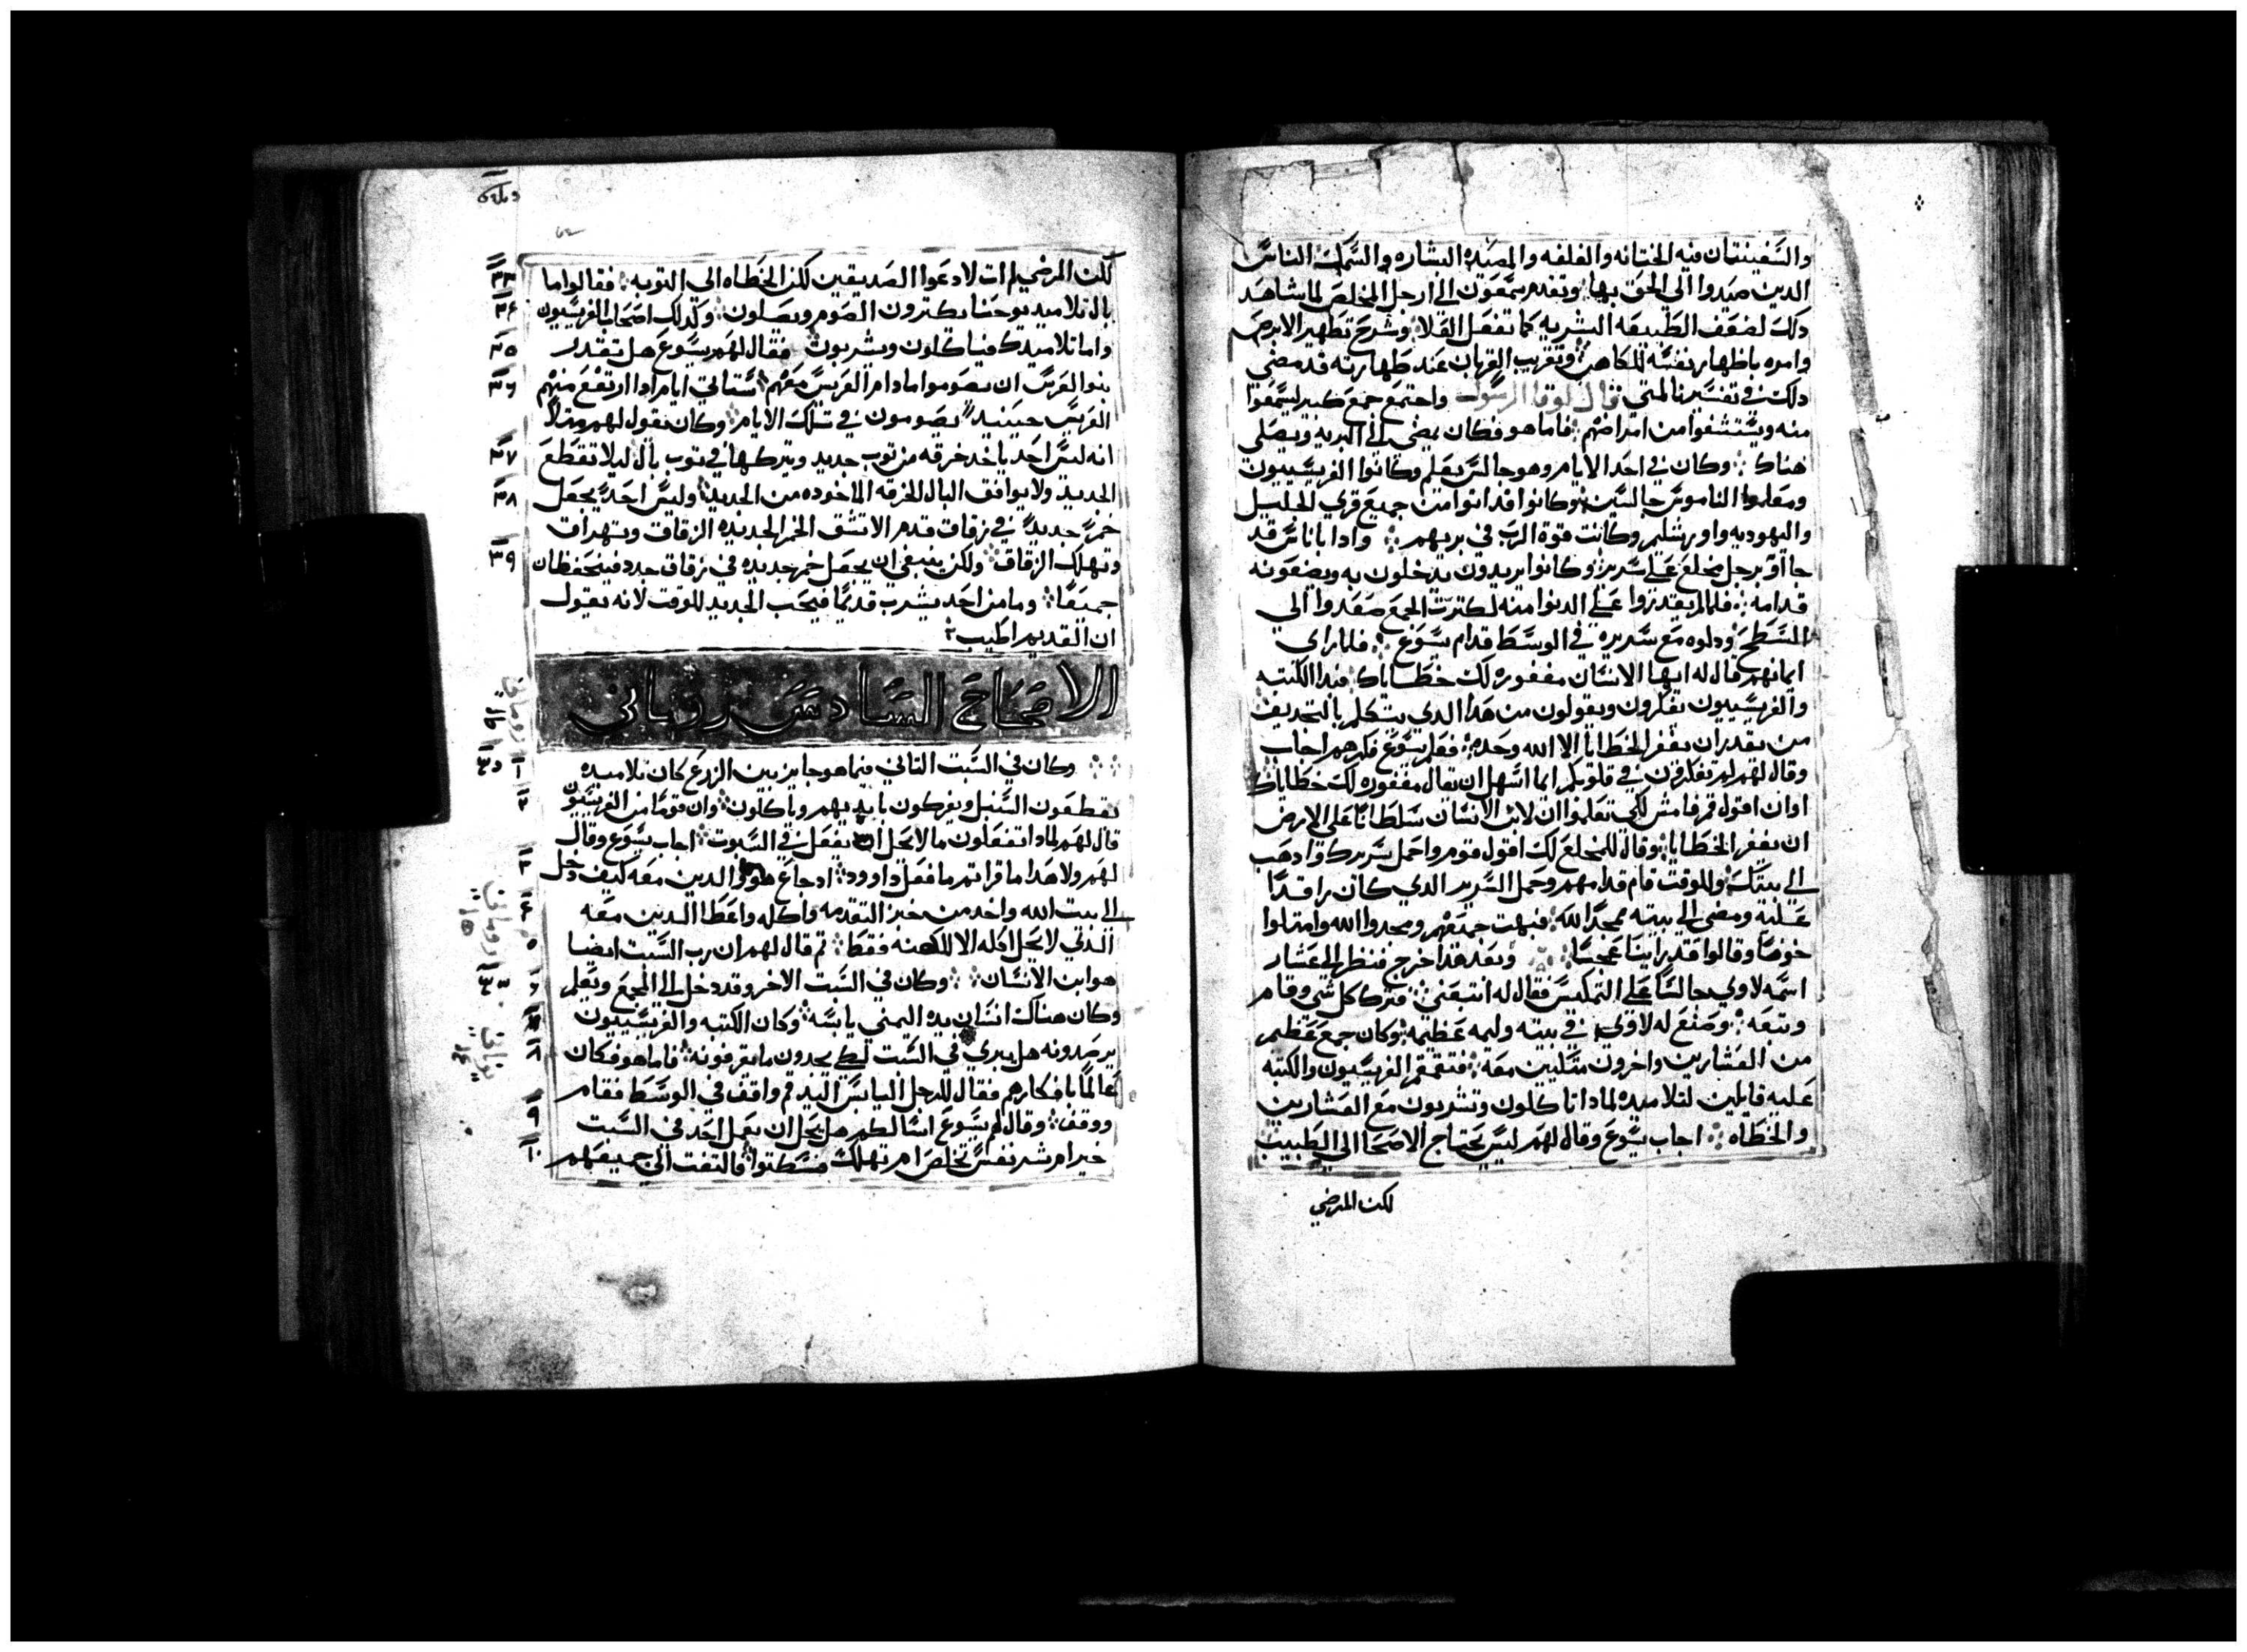 والسفينتان فيه الختانه والغلفه والمصيده البشاره والسمك الناس
الدين صيدوا الي الحق بها وتقدم سمعون الي ارجل المخلص لما شاهد
دلك لضعف الطبيعه البشريه كما تفعل الفلا وشرح تطهير الابرص
وامره باظهار نفسه للكاهن وتقريب القربان عند طهارته قد مضي
دلك في تفسيرنا لمتي قال لوقا الرسول واجتمع جمع كبير ليسمعوا
منه ويستشفوا من امراضهم فاما هو فكان يمضي الي البريه ويصلي
هناك وكان في احد الايام وهو جالس يعلم وكانوا الفريسييون
ومعلموا الناموس جالسين وكانوا قد اتوا من جميع قري الجليل
واليهوديه واورشليم وكانت قوة الرب في بريهم وادا باناس قد
جااو برجل مخلع علي سرير وكانوا يريدون يدخلون به ويضعونه
قدامه فلما لم يقدروا علي الدنوا منه لكترت الجمع صعدوا الي
السطح ودلوه مع سريره في الوسط قدام يسوع فلما راي
ايمانهم قال له ايها الانسان مغفوره لك خطاياك فبدا الكتبه
والفريسييون يفكرون ويقولون من هدا الدي يتكلم بالتجديف
من يقدر ان يغفر الخطايا الا الله وحده فعلم يسوع فكرهم اجاب
وقال لهم لم تفكرون في قلوبكم ايما اسهل ان يقال مغفوره لك خطاياك
او ان اقول قم فامش لكي تعلموا ان لابن الانسان سلطانا علي الارض
ان يغفر الخطايا وقال للمخلع لك اقول قوم واحمل سريرك وادهب
الي بيتك وللوقت قام قدامهم وحمل السرير الدي كان راقدا
عليه ومضي الي بيته ممجدا لله فبهت جميعهم ومجدوا الله وامتلوا
خوفا وقالوا قد راينا عجبا وبعد هدا خرج فنظر الي عشار
اسمه لاوي جالسا علي التمكيس فقال له اتبعني فترك كل شي وقام
وتبعه وصنع له لاوي في بيته وليمه عظيمه وكان جمع عظيم
من العشارين واخرون متكيين معه فتقمقم الفريسيون والكتبه
عليه قايلين لتلاميده لمادا تاكلون وتشربون مع العشارين
والخطاه اجاب يسوع وقال لهم ليس يحتاج الاصحا الي الطبيب
لكن المرضي
لكن المرضي لم ات لادعوا الصديقين لكن الخطاه الي التوبه فقالوا ما
بال تلاميد يوحنا يكترون الصوم ويصلون وكدلك اصحاب الفريسيون
واما تلاميدك فياكلون ويشربون فقال لهم يسوع هل تقدر
بنوا العرس ان يصوموا مادام العريس معهم ستاتي ايام ادا ارتفع منهم
العريس حينيد يصومون في تلك الايام وكان يقول لهم متلا
انه ليس احد ياخد خرقه من توب جديد ويتركها في توب بال ليلا تقطع
الجديد ولا يوافق البال للخرقه الماخوده من الجديد وليس احد يجعل
خمرا جديدا في زقاق قدم الا تشق الخمر الجديده الزقاق وتهراق
وتهلك الزقاق ولكن ينبغي ان يجعل خمر جديده في زقاق جدد فينحفظان
جميعا وما من احد يشرب قديما فيحب الجديد للوقت لانه يقول
ان القديم اطيب
الاصحاح السادس روماني
وكان في السبت التاني فيما هو جايز بين الزرع كان تلاميده
يقطعون السنبل ويفركون بايديهم وياكلون وان قوما من الفريسيون
قال لهم لمادا تفعلون ما لا يحل ان يفعل في السبوت اجاب يسوع وقال
لهم ولا هدا ما قراتم ما فعل داوود اد جاع هو والدين معه كيف دخل
الي بيت الله واخد من خبز التقدمه واكله واعطا الدين معه
الدي لا يحل اكله الا للكهنه فقط تم قال لهم ان رب السبت ايضا
هو ابن الانسان وكان في السبت الاخر وقد دخل الي المجمع ويعلم
وكان هناك انسان يده اليمني يابسه وكان الكتبه والفريسييون
يرصدونه هل يبري في السبت لكي يجدون ما يقرفونه فاما هو فكان
عالما بافكارهم فقال للرجل اليابس اليد قم واقف في الوسط فقام
ووقف وقال لهم يسوع اسالكم هل يحل ان يعمل احد في السبت
خير ام شر نفس تخلص ام تهلك فسكتوا فالتفت الي جميعهم